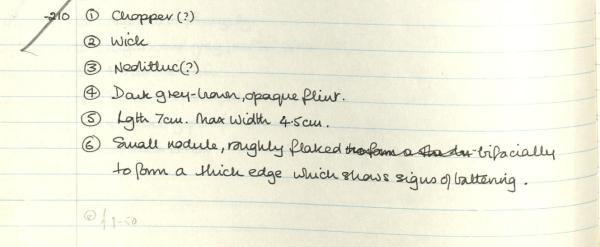 -210 ① Chopper(?)
② Wick
③ Neolithic(?)
④ Dark grey-brown, opaque flint.
⑤ Lgth 7cm. Max Width 4.5cm.
⑥ Small nodule, roughly flaked bifacially
to form a thick edge which shows signs of battering.